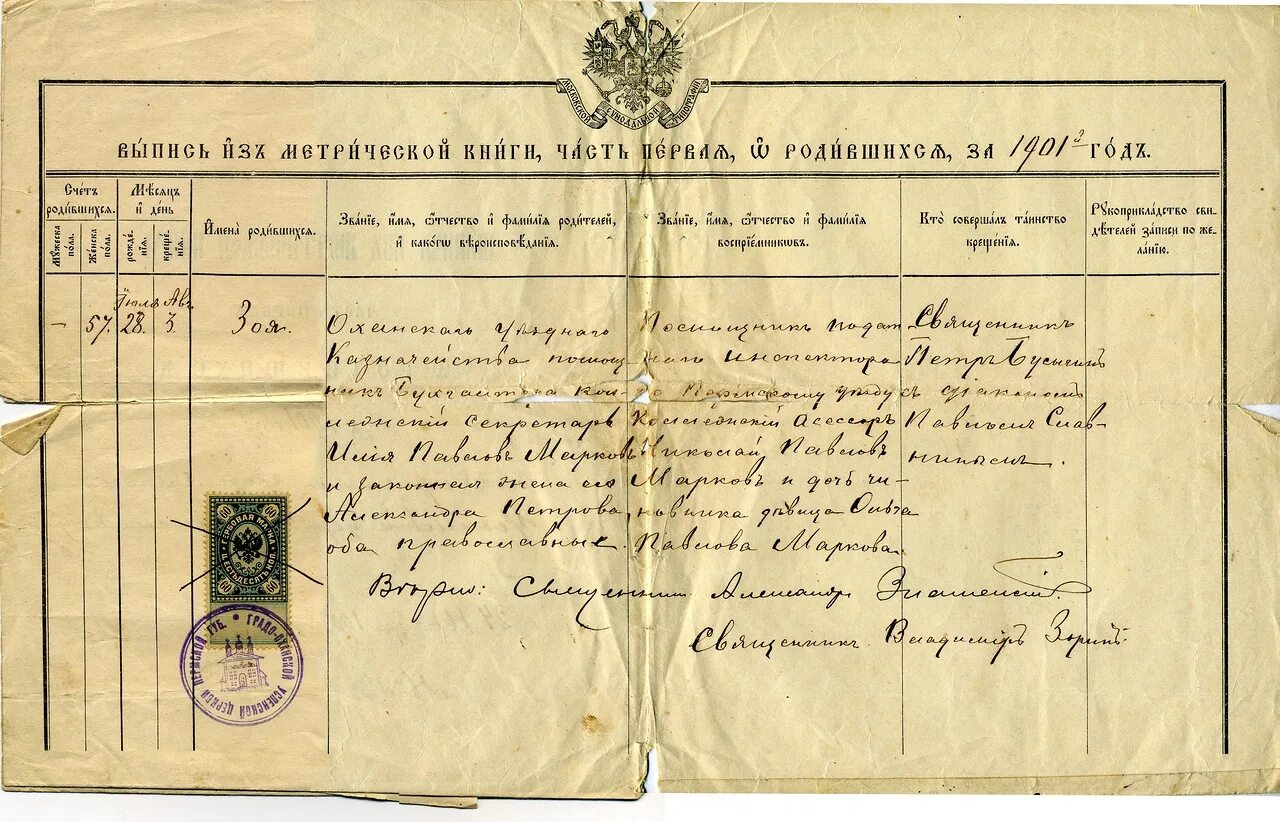 МОСКОВСКОЙ СѴНОДАЛЬНОЙ ТИПОГРАФІИ
ВЫ́ПИСЬ И҆ЗЪ МЕТРИ́ЧЕСКОЙ КНИ́ГИ, ЧА́СТЬ ПЕ́РВАЯ, Ѽ РОДИ́ВШИХСЯ, ЗА 1901й ГО́ДЪ.
Сче́тъ роди́вшихся.
Мѣ́сяцъ и҆ де́нь
Му́жеска по́ла.
Же́нска по́ла.
рожде́нїя.
креще́нїя.
И҆мена̀ роди́вшихся.
Зва́нїе, и҆́мя, ѻ҆́тчество и҆ фами́лїя роди́телей,
и҆ како́гѡ вѣроисповѣ́данїя.
Зва́нїе, и҆́мя, ѻ҆́тчество и҆ фами́лїя
воспрїе́мникѡвъ.
Кто̀ соверша́лъ та́инство
креще́нїя.
Рꙋкоприкла́дство сви-
дѣ́телей за́писи по же-
ла́нїю.
Іюля Авг.
— 57. 28. 3.
Зоя.
Оханскаго уѣзднаго
Казначейства помощ-
никъ Бухгалтера Кол-
лежскій Секретарь
Илія Павловъ Марковъ
и законная жена его
Александра Петрова,
оба православные.
Помощникъ подат-
наго инспектора
по Пермскому уѣзду
Коллежскій Асессоръ
Николай Павловъ
Марковъ и дочь чи-
новника дѣвица Ольга
Павлова Маркова
Священникъ
Петръ
съ діакономъ
Павломъ Слав-
нинымъ.
Вѣрно: Священникъ Александръ Знаменскій.
Священникъ Владиміръ
ГЕРБОВАЯ МАРКА
ШЕСТЬДЕСЯТЪ КОП.
60 60 60 60
ГРАДО-ОХАНСКОЙ УСПЕНСКОЙ ЦЕРКВИ ПЕРМСКОЙ ГУБ.